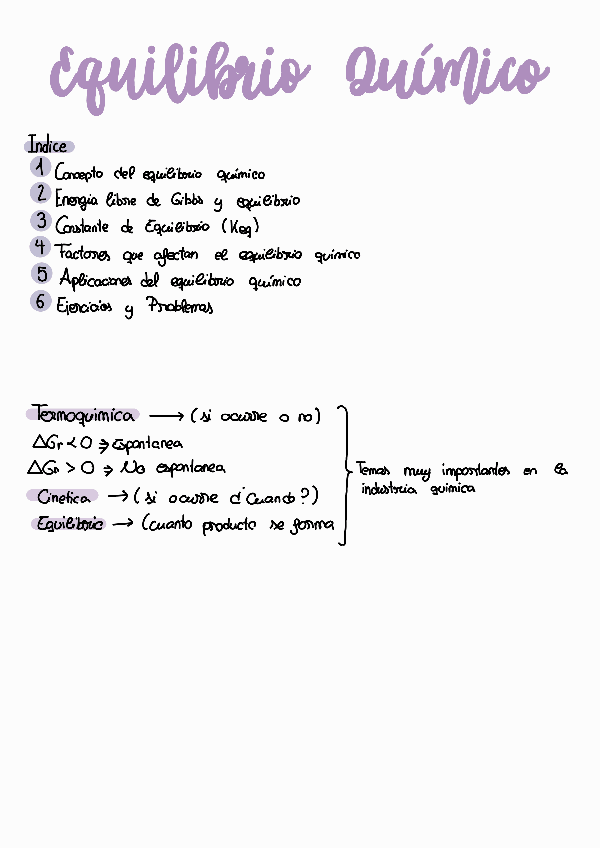 Equilibrio Químico
Indice
1 Concepto del equilibrio químico
2 Energía libre de Gibbs y equilibrio
3 Constante de Equilibrio (Keq)
4 Factores que afectan el equilibrio químico
5 Aplicaciones del equilibrio químico
6 Ejercicios y Problemas
Termoquimica → (si ocurre o no)
ΔGr < 0 ⇒ Espontanea
ΔGr > 0 ⇒ No espontanea
Cinetica → (si ocurre ¿Cuando?)
Equilibrio → (cuanto producto se forma
Temas muy importantes en la
industria quimica